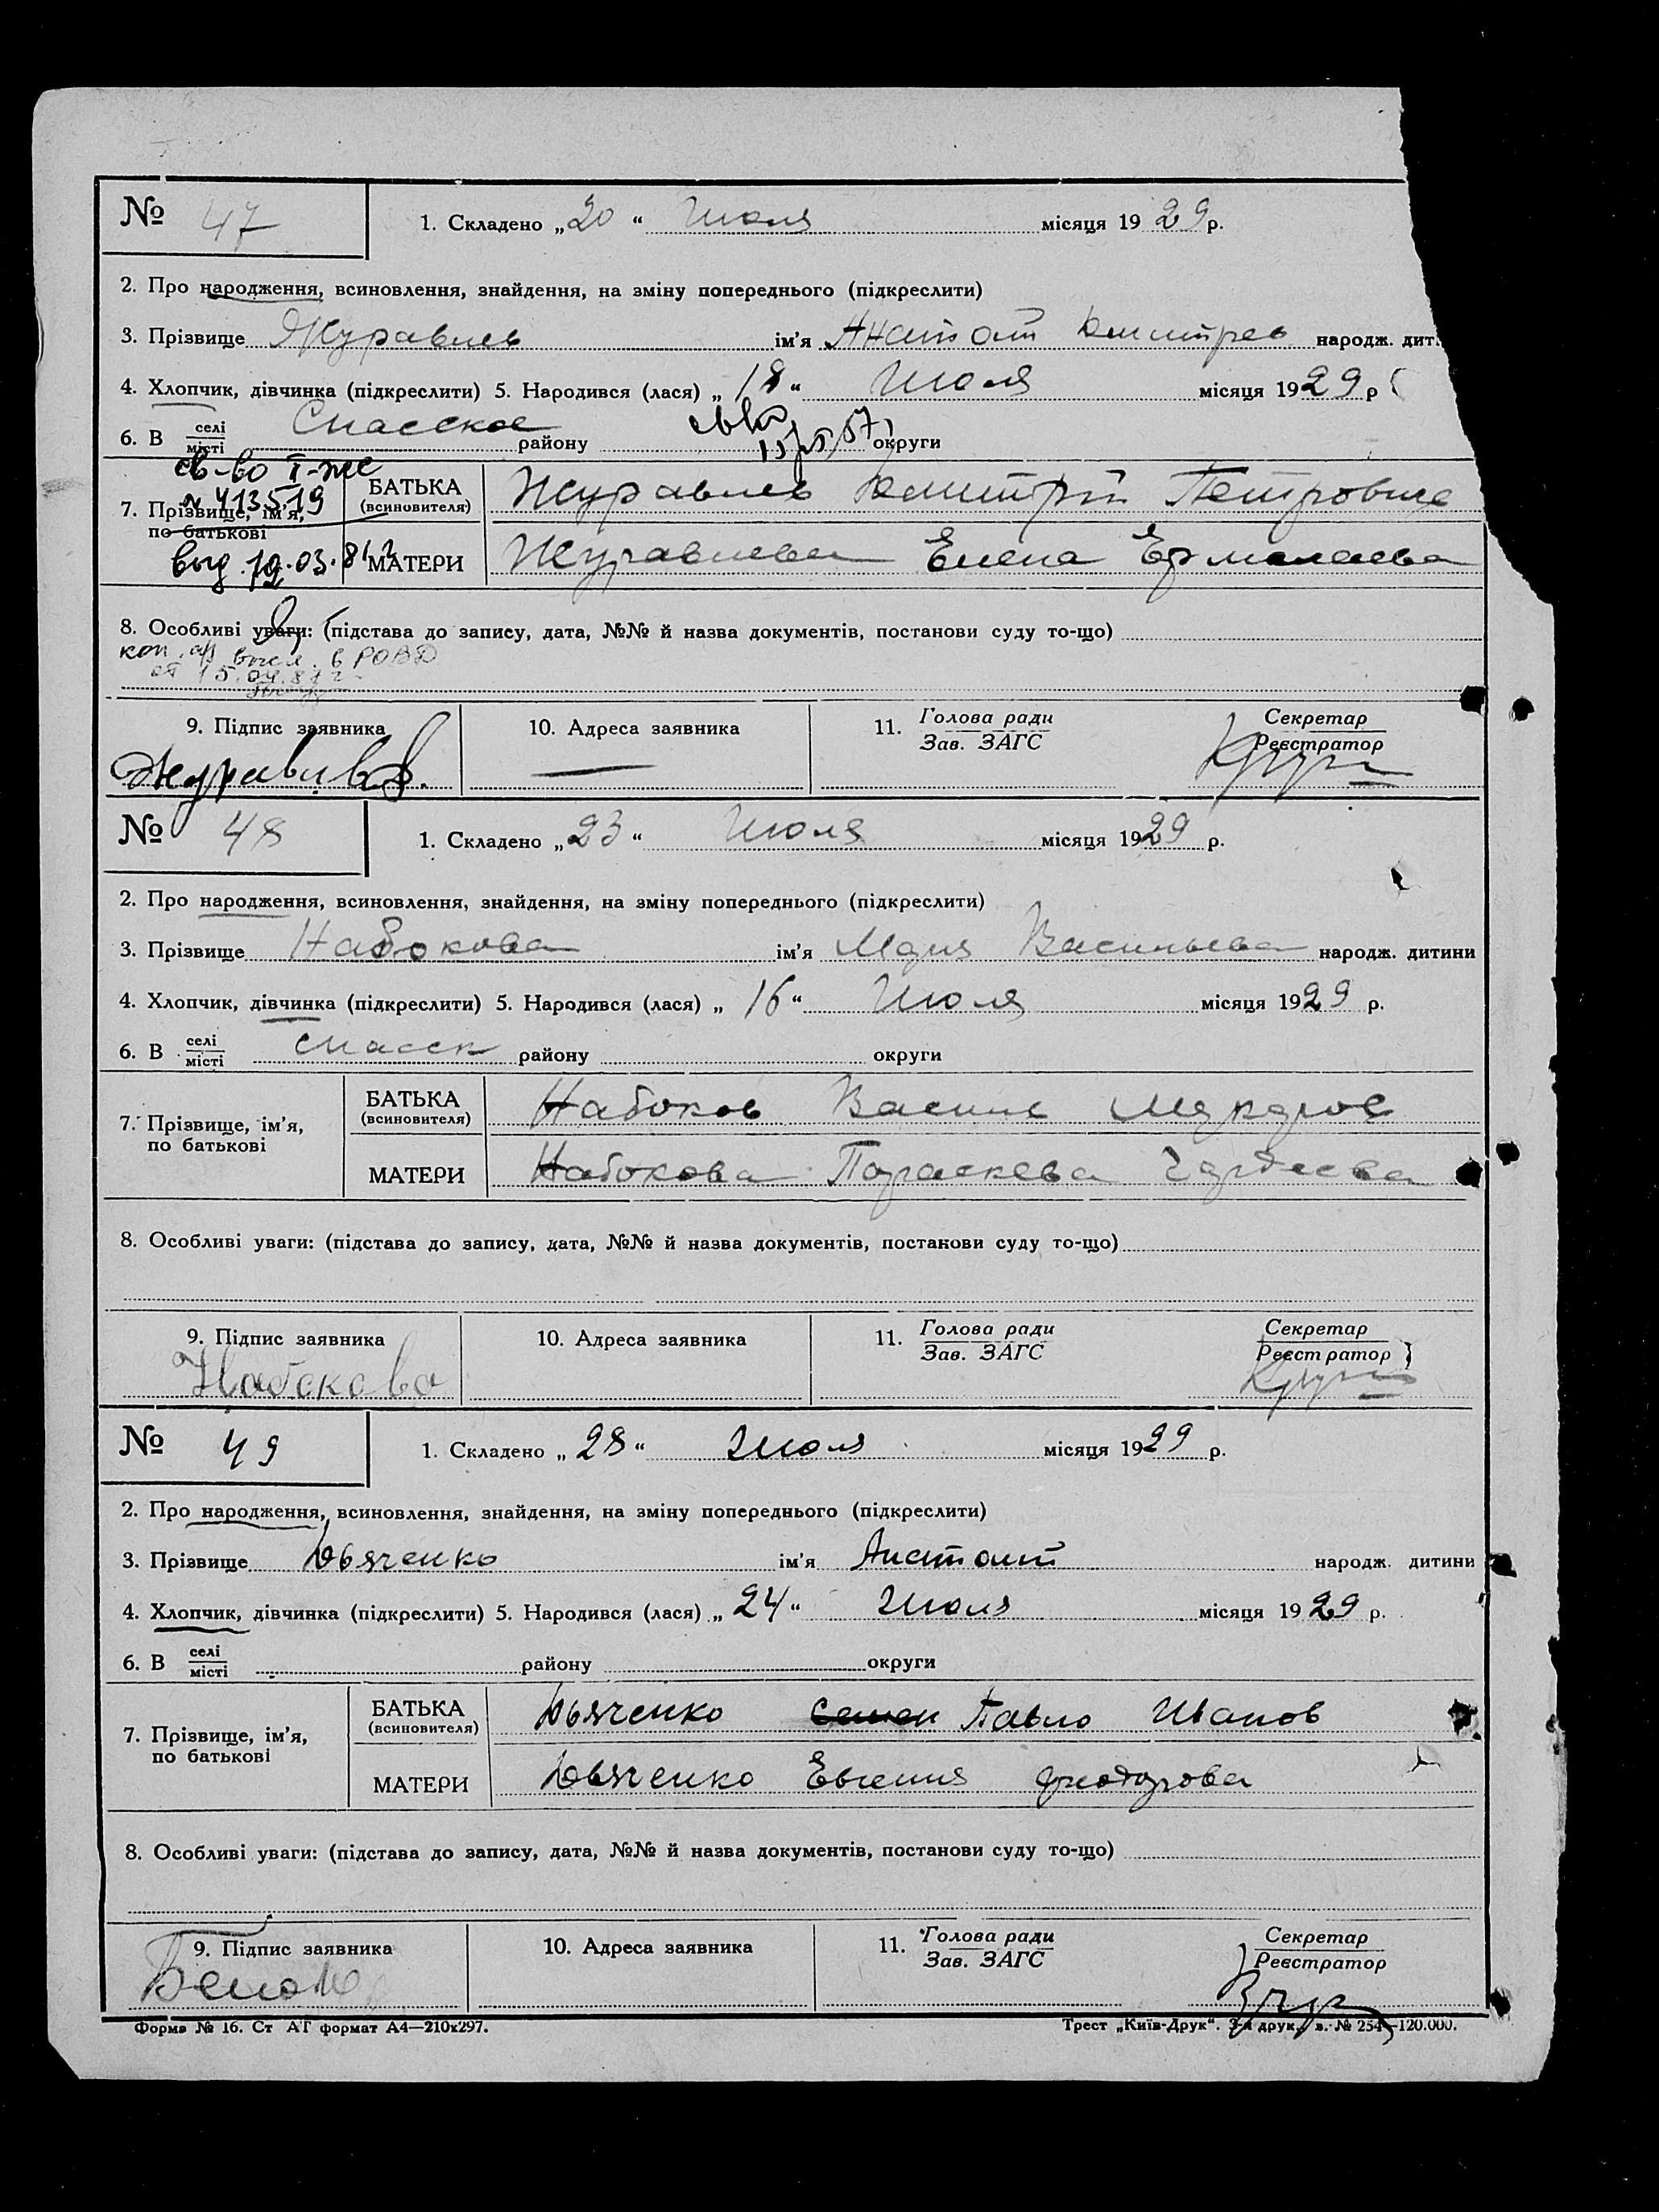 № 47 1. Складено „20“ Июля місяця 1929 р.
2. Про народження, всиновлення, знайдення, на зміну попереднього (підкреслити)
3. Прізвище Журавлев ім'я Анатолий Дмитрев народж. дит
4. Хлопчик, дівчинка (підкреслити) 5. Народився (лася) „18“ Июля місяця 1929 р
6. В селі місті Спасское району округи
св-во І-же
№ 413519
7. Прізвище, ім'я, по батькові
БАТЬКА (всиновителя) Журавлев Дмитрий Петрович
выд. 19.03.81 г
МАТЕРИ Журавлева Елена Ермолаева
8. Особливі уваги: (підстава до запису, дата, №№ й назва документів, постанови суду то-що)
коп. а/з высл. в РОВД
от 15.04.81 г.
9. Підпис заявника 10. Адреса заявника 11. Голова ради Зав. ЗАГС Секретар Реєстратор
Журавлев
№ 48 1. Складено „23“ Июля місяця 1929 р.
2. Про народження, всиновлення, знайдення, на зміну попереднього (підкреслити)
3. Прізвище Набокова ім'я Мария Васильева народж. дитини
4. Хлопчик, дівчинка (підкреслити) 5. Народився (лася) „16“ Июля місяця 1929 р.
6. В селі місті Спасск району округи
7. Прізвище, ім'я, по батькові
БАТЬКА (всиновителя) Набоков Васили
МАТЕРИ Набокова Параскева Гордеева
8. Особливі уваги: (підстава до запису, дата, №№ й назва документів, постанови суду то-що)
9. Підпис заявника 10. Адреса заявника 11. Голова ради Зав. ЗАГС Секретар Реєстратор
Набокова
№ 49 1. Складено „28“ Июля місяця 1929 р.
2. Про народження, всиновлення, знайдення, на зміну попереднього (підкреслити)
3. Прізвище Дьяченко ім'я Анатолий народж. дитини
4. Хлопчик, дівчинка (підкреслити) 5. Народився (лася) „24“ Июля місяця 1929 р.
6. В селі місті району округи
7. Прізвище, ім'я, по батькові
БАТЬКА (всиновителя) Дьяченко Семен Павло Иванов
МАТЕРИ Дьяченко Евгения Феодорова
8. Особливі уваги: (підстава до запису, дата, №№ й назва документів, постанови суду то-що)
9. Підпис заявника 10. Адреса заявника 11. Голова ради Зав. ЗАГС Секретар Реєстратор
Форма № 16. Ст АГ формат А4—210х297. Трест „Київ-Друк“. 3-я друк. в. № 254—120.000.